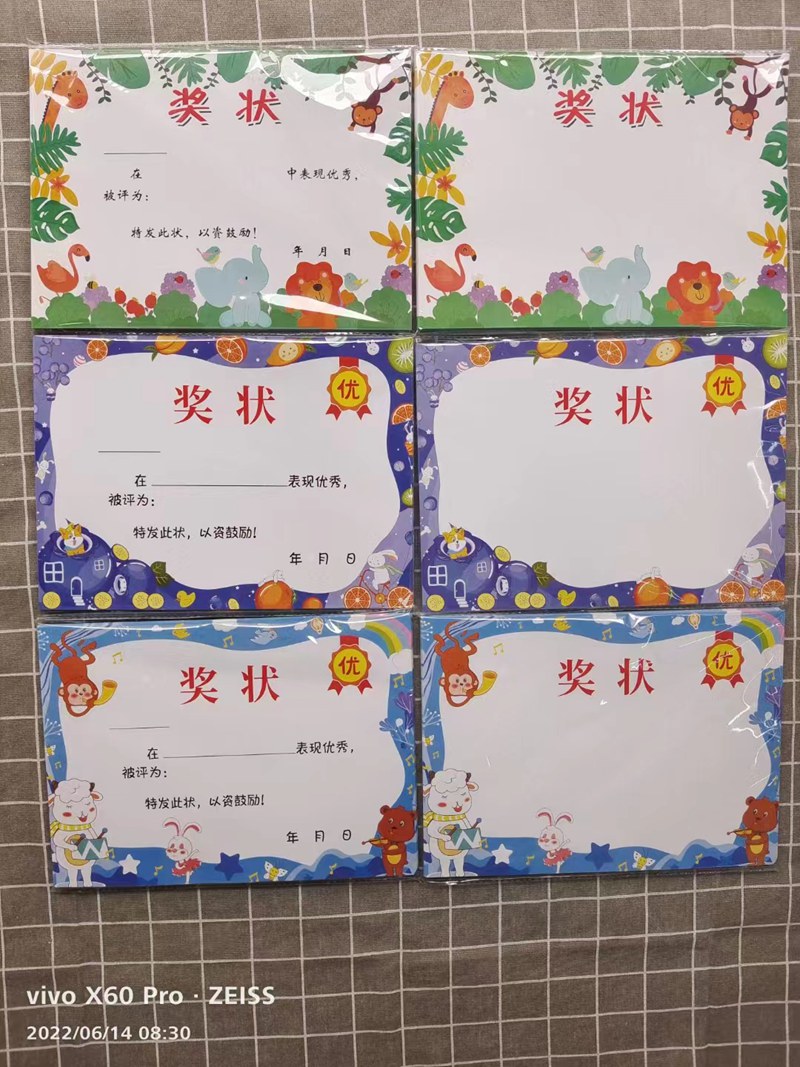 奖 状
在 中表现优秀，
被评为：
特发此状，以资鼓励！
年 月 日
奖 状
奖 状
优
在 表现优秀，
被评为：
特发此状，以资鼓励！
年 月 日
奖 状
优
奖 状
优
在 表现优秀，
被评为：
特发此状，以资鼓励！
年 月 日
奖 状
优
vivo X60 Pro · ZEISS
2022/06/14 08:30